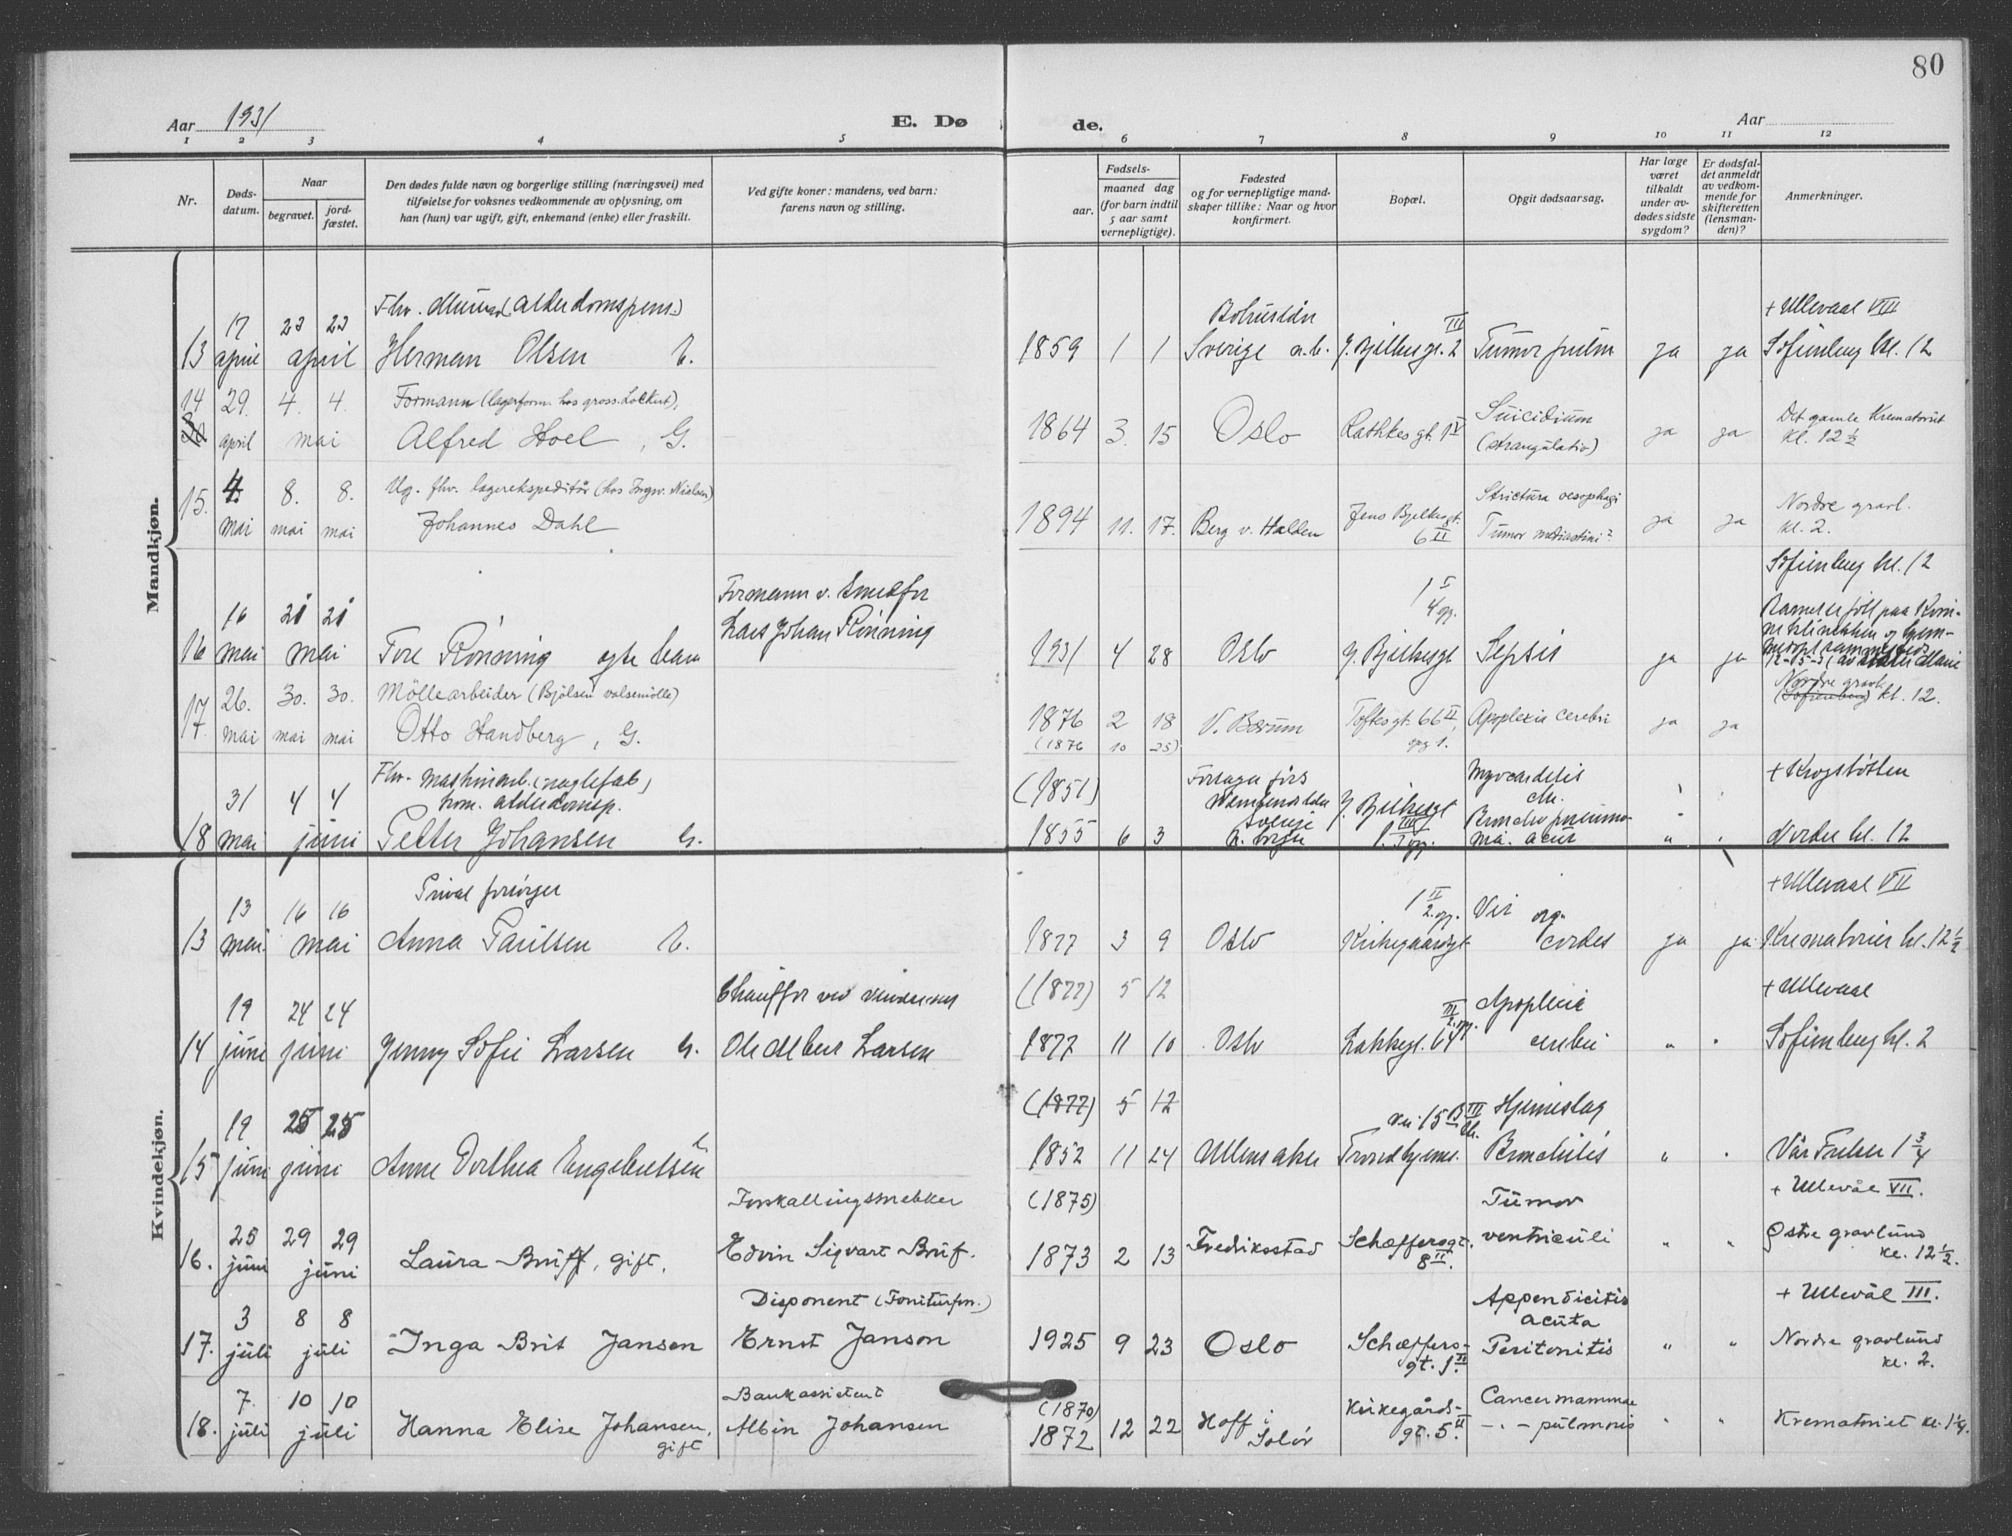 80
Aar 1931
E. Dø
de.
Aar
1 2 3 4 5 6 7 8 9 10 11 12
Nr.
Døds-
datum.
Naar
begravet.
jord-
fæstet.
Den dødes fulde navn og borgerlige stilling (næringsvei) med
tilføielse for voksnes vedkommende av oplysning, om
han (hun) var ugift, gift, enkemand (enke) eller fraskilt.
Ved gifte koner: mandens, ved barn:
farens navn og stilling.
Fødsels-
aar.
maaned dag
(for barn indtil
5 aar samt
vernepligtige).
Fødested
og for vernepligtige mand-
skaper tillike: Naar og hvor
konfirmert.
Bopæl.
Opgit dødsaarsag.
Har læge
været
tilkaldt
under av-
dødes sidste
sygdom?
Er dødsfal-
det anmeldt
av vedkom-
mende for
skifteretten
(lensman-
den)?
Anmerkninger.
Mandkjøn.
17 23 23 Fhv. (alderdomspens.) + Ullevaal VIII
13 april april Herman Olsen 1859 1 1 Sverige Tumor pulm ja ja Sofienberg kl. 12
14 29. 4. 4. Formann (lagerform. hos gross. ) Suicidium Det gamle Krematorium
april mai Alfred Hoel, G. 1864 3. 15 Oslo Rathkes gt. 1 II (strangulatio) ja ja kl. 12 1/2
15. 4. 8. 8. Ug. fhv. lagerekspeditör (hos Ingw. Nielsen) Strictura oesophagi Nordre gravl.
mai mai mai Johannes Dahl 1894 11. 17. Berg v. Halden Jens Bjelkesgt. 6 II Tumor mediastini? ja ja kl. 2.
Sofienberg kl. 12
16 Formann v.
16 mai mai Tore Rönning egte barn Lars Johan Rönning 1931 4 28 Oslo J. Bjelkesgt Sepsis ja ja
17. 26. 30. 30. Möllearbeider (Bjölsen valsemölle) Nordre gravl. (Sofienberg) kl. 12.
mai mai mai Otto Handberg, G. 1876 2 18 V. Bærum Toftesgt. 66 II Apoplexia cerebri ja ja
(1876 10 25) opg 1.
31 4 4 Fhv. (1851) + Krogstötten
18 mai juni Petter Johansen G. 1855 6 3 J. Bjelkesgt 1 III Nordre kl. 12
Kvindekjøn.
13 16 16 Privat forsörget + Ullevaal VII
13 mai mai Anna Paulsen 1877 3 9 Oslo Kirkegaardsgt Vit org. cordis ja ja Krematoriet kl. 12 1/2
19 24 24 Chauffør ved (1877) 5 12 + Ullevaal
14 juni juni Jenny Sofie Larsen G. Ole Albert Larsen 1877 11 10 Oslo Lakkegt. 64 Apoplexia cerebri " " Sofienberg kl. 2
19 25 25 (1877) 5 12 Hjerneslag
15 juni juni Anne Dorthea Engebretsen 1852 11 24 Ullensaker Trondhjems. Bronchitis " " Vår Frelser 1 3/4
25 29 29 Forskallingssnekker (1875) Tumor + Ullevål VII.
16. juni juni Laura Bruff, gift. Edvin Sigvart Bruf. 1873 2 13 Fredriksstad Schæffersgt. 8 II. ventriculi " " Østre gravlund kl. 12 1/2.
3 8 8 Disponent Appendicitis acuta + Ullevål III.
17. juli juli Inga Brit Jansen Ernst Janson 1925 9 23 Oslo Schæffers- gt. 1 II Peritonitis " " Nordre gravlund kl. 2.
7. 10 10 Bankassistent (1870) Kirkegårds- Cancer mammae
18. juli juli Hanna Elise Johansen, gift Albin Johansen 1872 12 22 Hoff i Solör gt. 5 II. - " - pulmonis " " Krematoriet kl. 1 1/4.